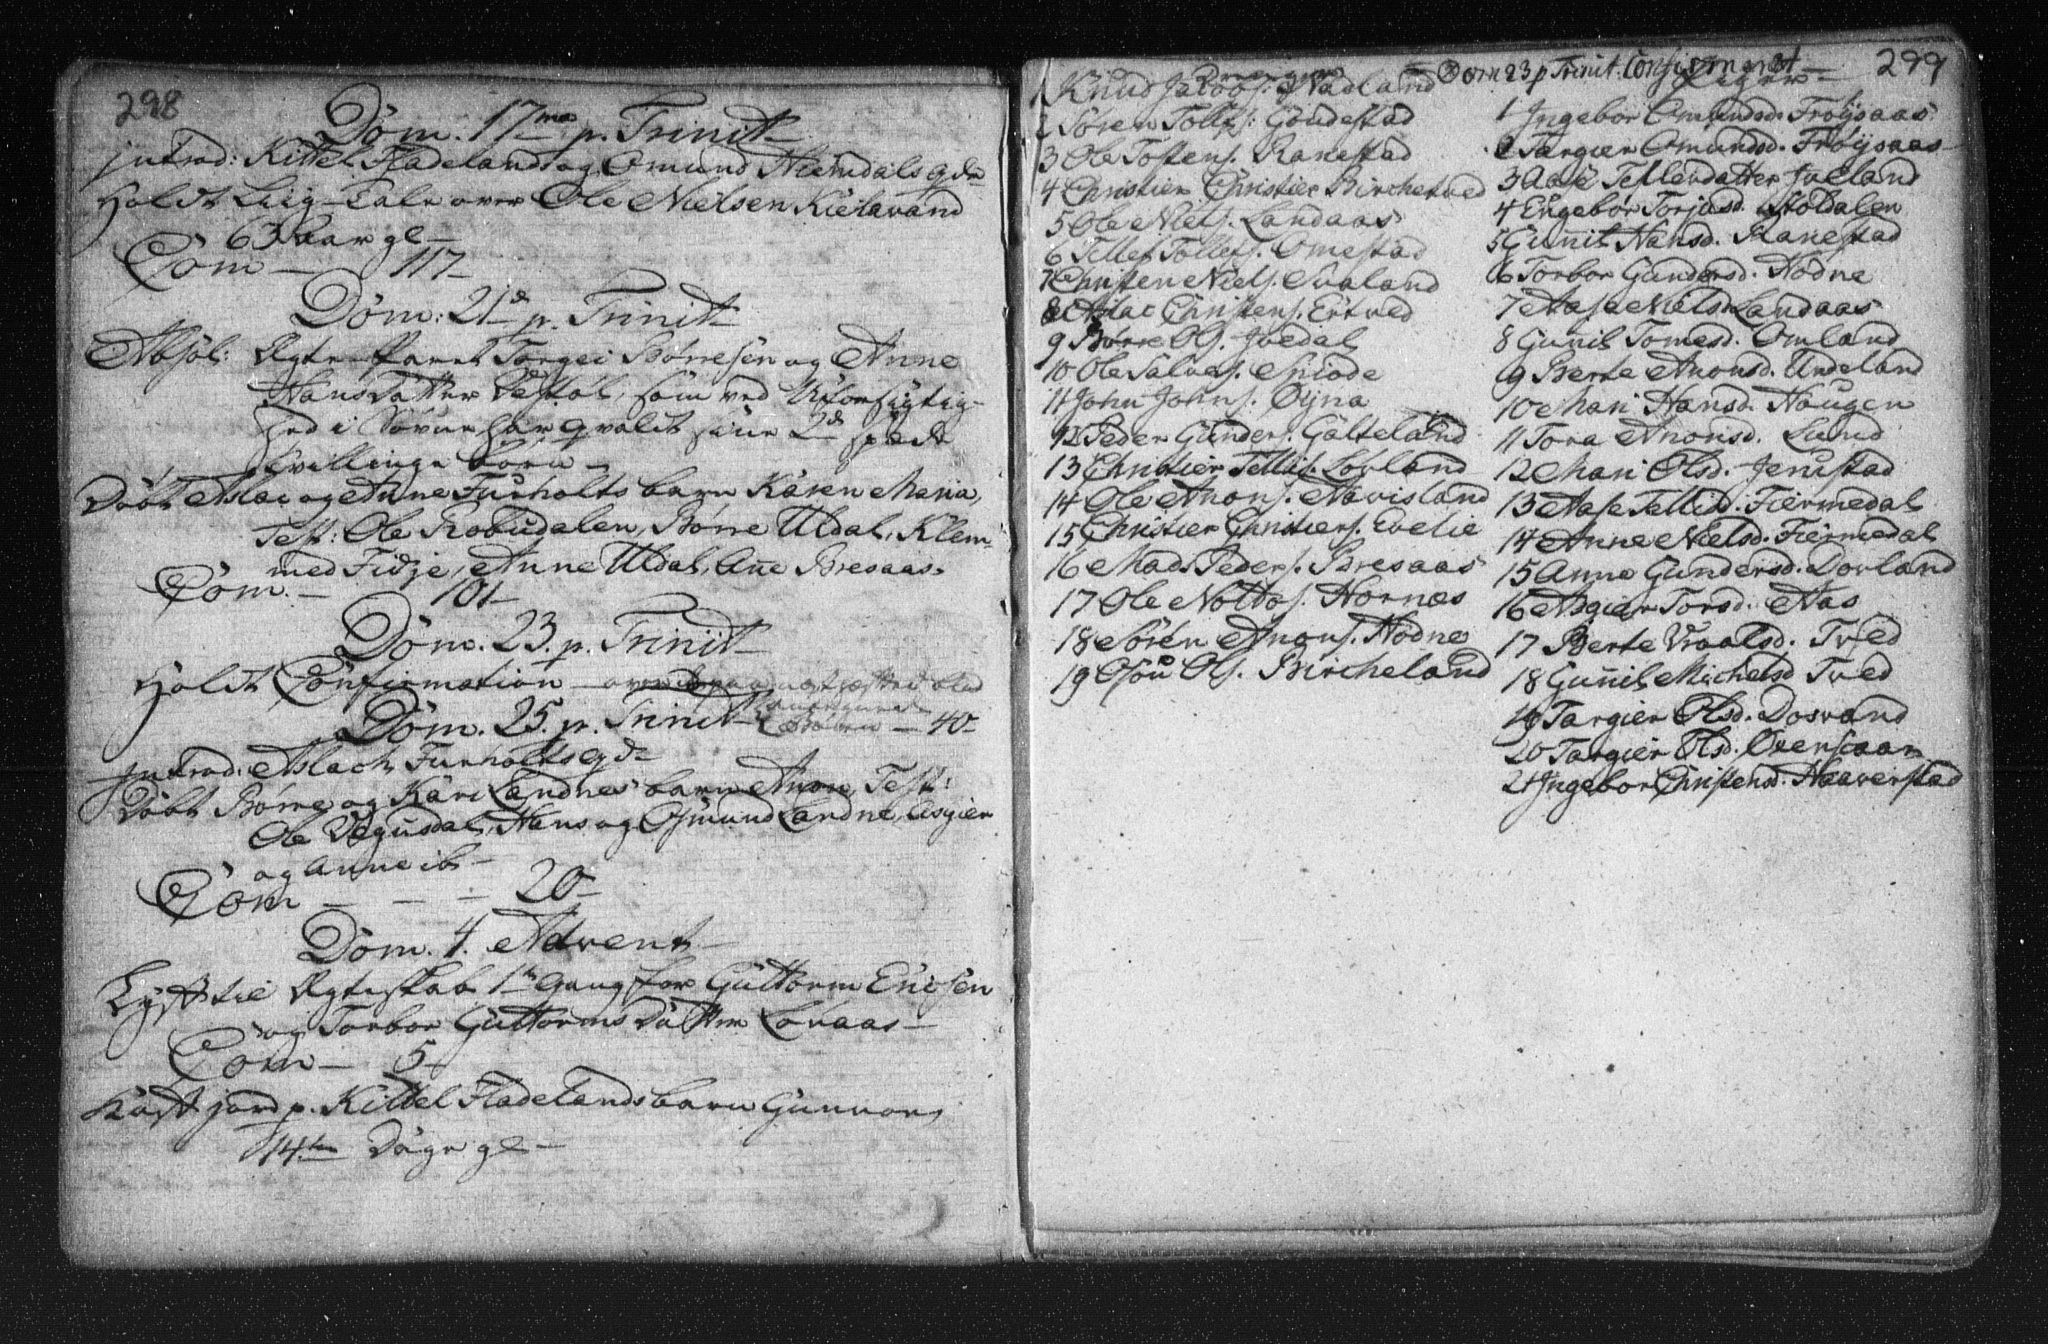 298
Dom. 17ma p. Trinit
Introd: Kittel Fladeland og Omund Hiemdals qdr
Holdt Liig-Tale over Ole Nielsen Kielavand
63 Aar gl
Com — 117
Dom: 21de p. Trinit
Absol: Ægte-Paret Torgei Børresen og Anne
HansDatter Vestøl, som ved Uforsigtig-
hed i Søvne har qvalt sine 2de spæde
Tvillinge børn —
Døbt Aslac og Anne Furholts barn Karen Maria,
Test: Ole Robudalen, Børre Uldal, Klem-
med Fidje, Anne Uldal, Añe Bresaas
Com. — 101
Dom. 23. p. Trinit
Holdt Confirmation — over
Børn — 40
Dom. 25. p. Trinit
Introd: Aslach Furholts qd
Døbt Børre og Kari Landnes barn Anon, Test:
Ole Vegusdal, Hans og Osmund Landne, Asgier
og Anne ib
Com — — — 20
Dom. 4. Advent
Lyst til Ægteskab 1te Gang for Guttorm Ericsen
og Torbor GuttormsDatter Lovaas —
Com — 5
Kast jord p. Kittel Fladelands barn Gunvor,
14ten Dage gl —
299
Dom 23 p Trinit. Confirmeret
1 Knud Jacobs. Hadland
2 Søren Tollefs. Goudestad
3 Ole Tostens. Ranestad
4 Christier Christier Birchetved
5 Ole Niels. Landaas
6 Tellef Tollefs. Omestad
7 Christen Niels. Svaland
8 Aslac Christens. Ertved
9 Børre Ols. Joedal
10 Ole Salves. Spiode
11 John Johns. Øÿna
12 Peder Gunders. Galteland
13 Christier Tellefs. Lovland
14 Ole Anons. Navisland
15 Christier Christiers. Evelie
16 Mads Peders. Bresaas
17 Ole Nottos. Hornæs
18 Søren Anons. Nodne
19 Osou Ols. Bircheland
Piger
1 Ingebor Omundsd. Frøÿsaas
2 Targier Omundsd. Frøÿsaas
3 Aase Tellevdatter Joeland
4 Engebor Torjusd. Stoldalen
5 Guñil Hansd. Ranestad
6 Torbor Gundersd. Nodne
7 Aase Nielsd. Landaas
8 Gunil Tomesd. Omland
9 Berte Anonsd. Urdeland
10 Mari Hansd. Haugen
11 Tora Anonsd. Lund
12 Mari Olsd. Jerustad
13 Aase Tellifd. Fiermedal
14 Anne Nielsd. Fiermedal
15 Anne Gundersd. Dovland
16 Asgier Torsd. Aas
17 Berte Vraalsd. Tved
18 Guñil Michelsd Tved
19 Targier Olsd. Dosvand
20 Targier Olsd. Ovenscaar
21 Ingebor Christensd. Haaverstad